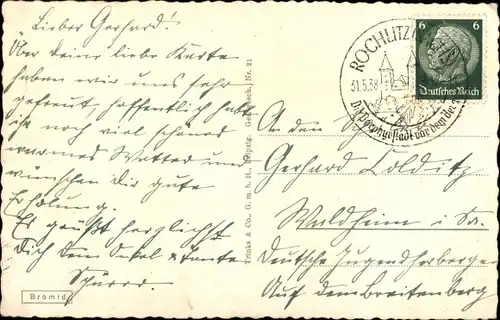 Lieber Gerhard!
Über Deine liebe Karte
haben wir uns sehr
gefreut, hoffentlich habt
ihr noch viel schönes
warmes Wetter und
wünschen Dir gute
Erholung.
Es grüßt herzlichst
Dich Dein Onkel & Tante
Bromid
Trinks & Co., G. m. b. H., Leipzig, Nr. 21
ROCHLITZ
31.5.38
Die Porphyrstadt vor dem
6 6
Deutsches Reich
An den
Gerhard Colditz
Waldheim i Sa.
Deutsche Jugendherberge
Auf dem Breitenberg